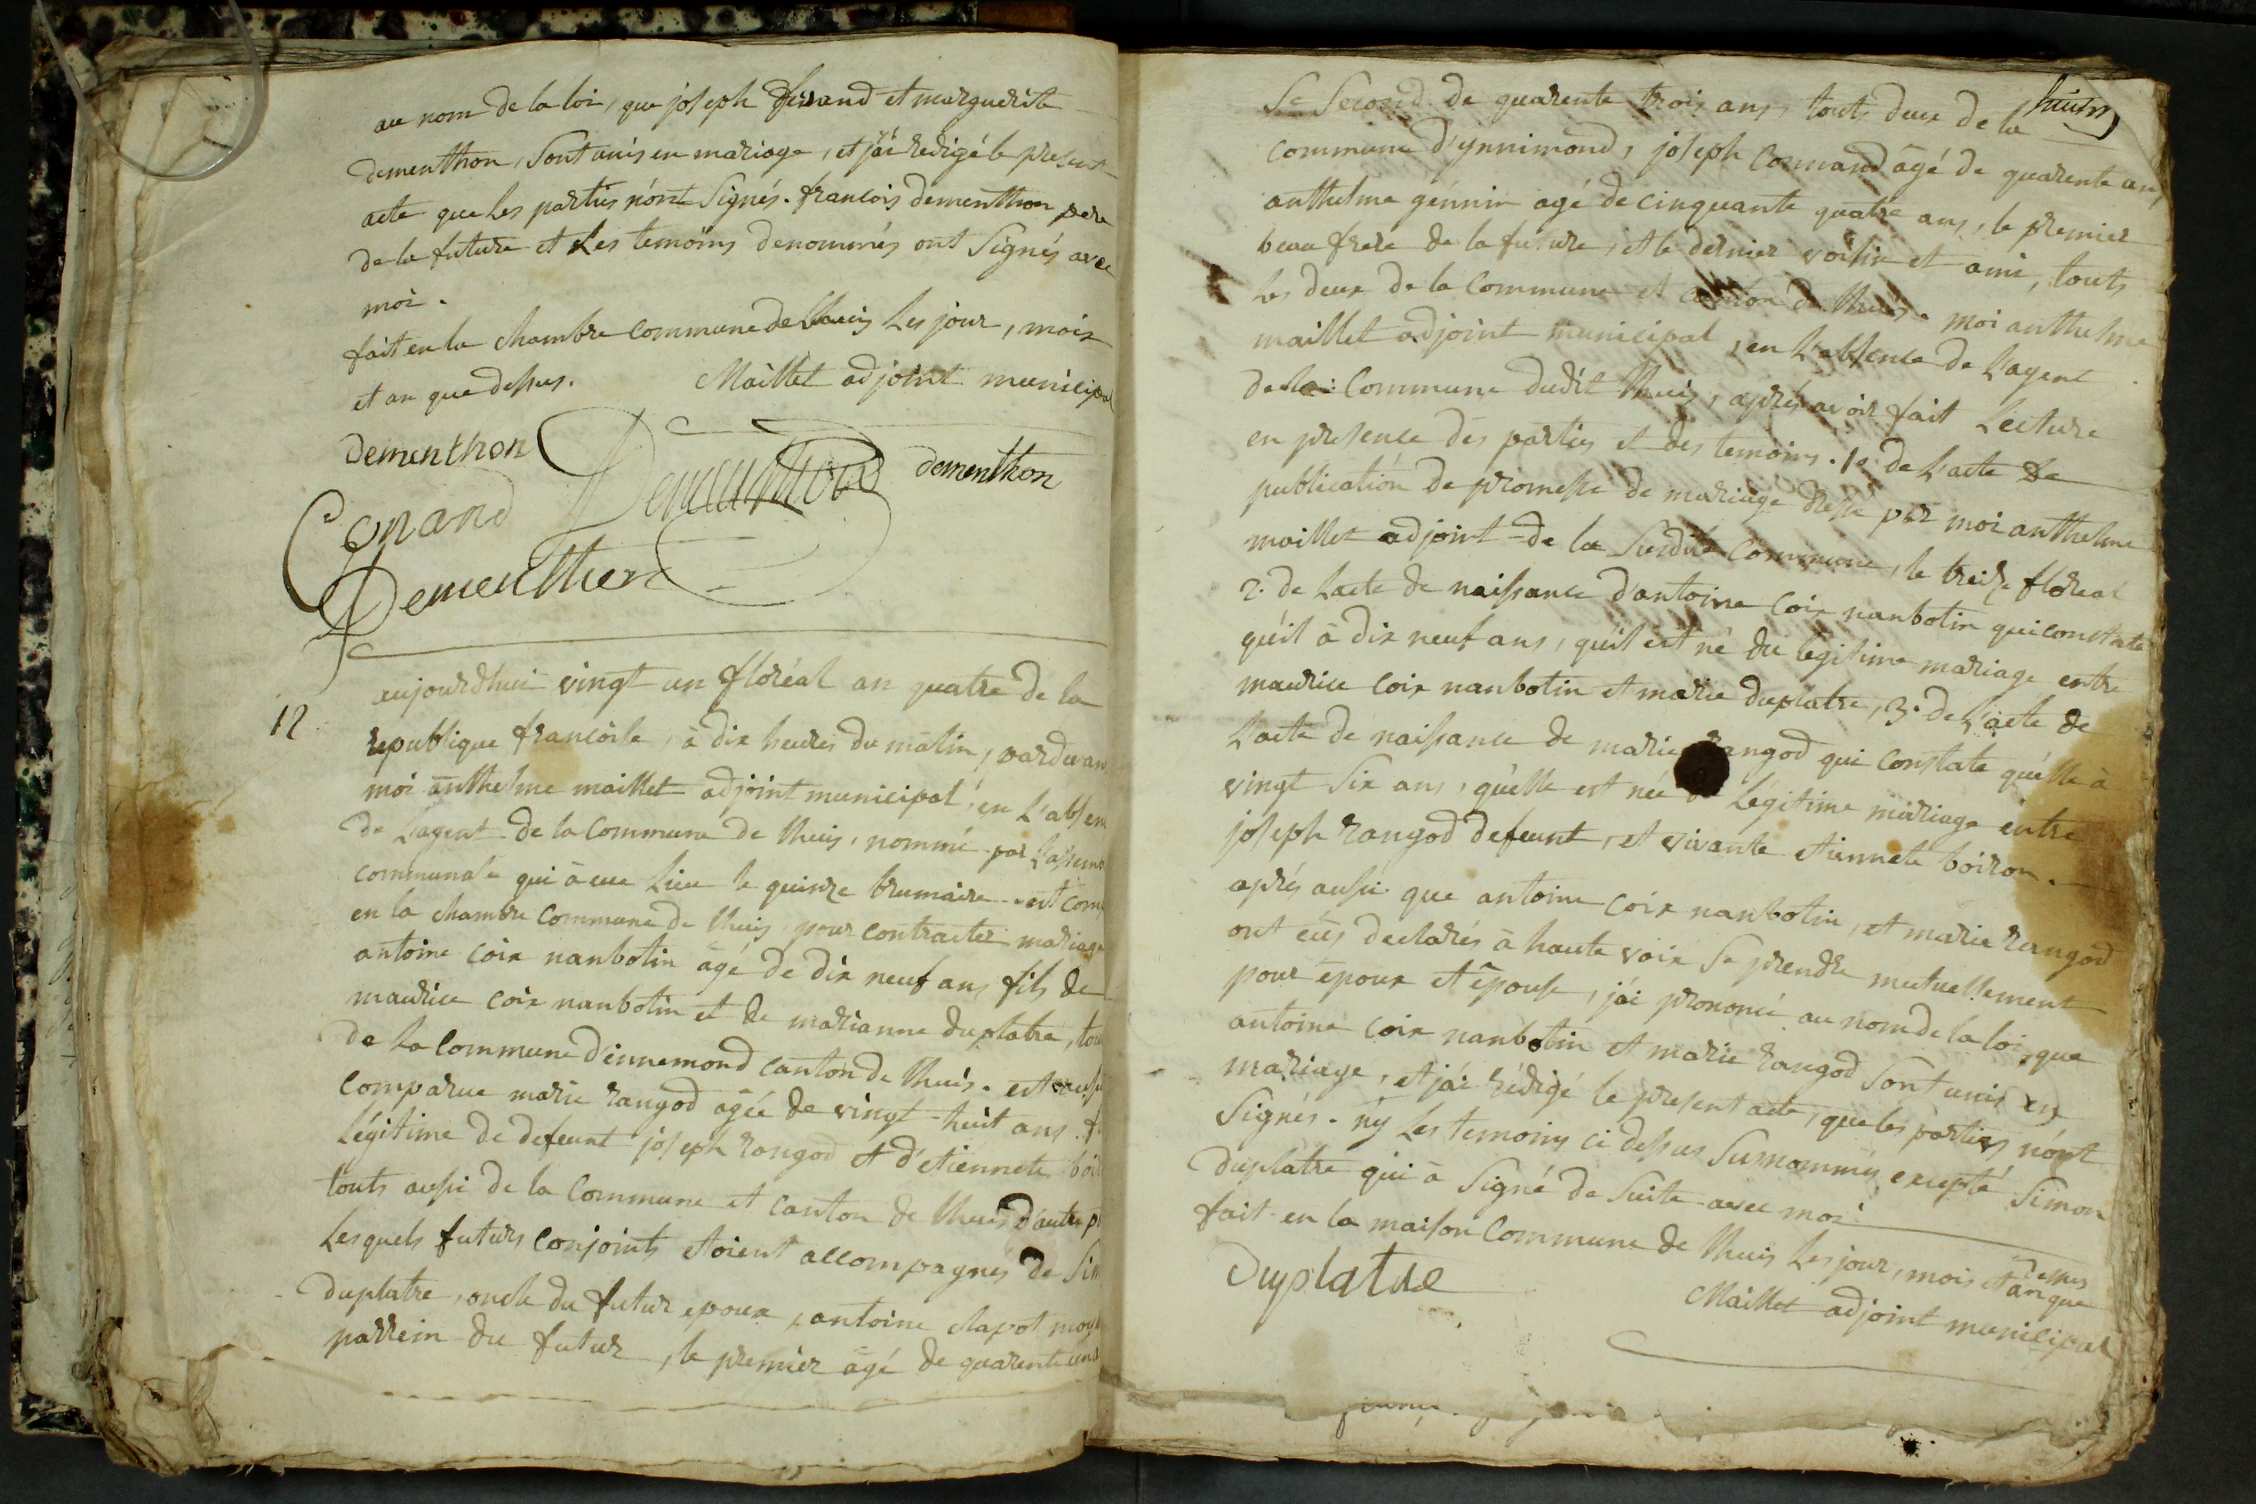 au nom de la loi, que joseph ferrand et marguerite
dementhon, Sont unis en mariage, et j'ai redigé le present
acte que Les parties n'ónt Signés. francois dementhon pere
de la future et Les temoins denommés ont Signés avec
moi.
fait en la chambre commune de lhuis Les jour, mois
et an que dessus. Maillet adjoint municipal
dementhon Dementhon dementhon
Conand
Dementhon
12
aujourdhui vingt un floréal an quatre de la
republique francoise, à dix heures du matin, pardevan
moi anthelme maillet adjoint municipal, en L'absen
de Lagent de la Commune de lhuis, nommé par Lassem
communale qui à eue Lieu le quinze brumaire . est com
en la chambre Commune de lhuis, pour contracter mariage
antoine coix nanbotin âgé de dix neuf ans fils de
maurice coix nanbotin et de marianne duplatre, tou
de La Commune d'innemond canton de lhuis. est aussi
comparue marie rangod agée de vingt-huit ans. f
Légitime de defeunt joseph rangod et d'etiennete boi
touts aussi de la Commune et canton de lhuis d'autre p
Lesquels futurs Conjoints etoient accompagnés de Sim
duplatre, oncle du futur epoux, antoine clapot
parrein du futur, le premier âgé de quarente
huis
Le Second de quarente trois ans, touts deux de la
commune d'ynnimond, joseph Connand âgé de quarente ans,
anthelme génnin agé de cinquante quatre ans, le premier
beau frere de la future, et le dernier voisin et ami, touts
Les deux de la Commune et canton de lhuis. moi anthelme
maillet adjoint municipal, en L'absence de Lagent
de la Commune dudit lhuis, après avoir fait Lecture
en presence des parties et des temoins. 1° de L'acte de
publication de promesse de mariage dressé par moi anthelme
maillet adjoint de la Susdite Commune, le treize floreal
2. de Lacte de naissance d'antoine Coix nanbotin qui constate
qu'il à dix neuf ans, qu'il est né du legitime mariage entre
maurice coix nanbotin et marie duplatre, 3. de L'acte de
L'acte de naissance de marie rangod qui constate qu'elle à
vingt Six ans, qu'elle est née Légitime mariage entre
joseph rangod defeunt, et vivante etiennete boiron.
aprés aussi que antoine coix nanbotin, et marie rangod
ont eûs declarés à haute voix Se prendre mutuellement
pour époux et épouse, j'ai prononcé au nom de la loi, que
antoine coix nanbotin et marie rangod Sont unis en
mariage, et j'ai rédigé le present acte, que les parties n'ónt
Signés. n'y Les temoins ci dessus Surnommés excepté Simon
duplatre qui à Signé de Suite avec moi
fait en la maison Commune de lhuis Les jour, mois et an que
dessus
Duplatre Maillet adjoint municipal